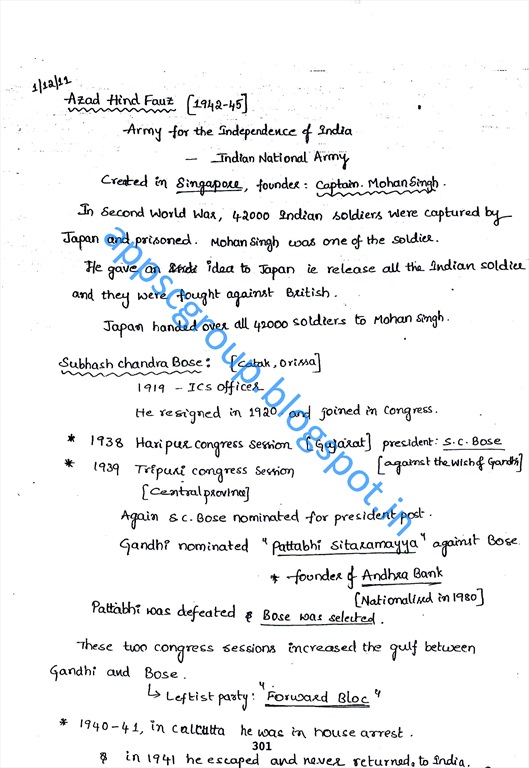 1/12/11
Azad Hind Fauz [1942-45]
Army for the Independence of India
— Indian National Army
Created in Singapore, founder: Captain. Mohan Singh.
In Second World War, 42000 Indian soldiers were captured by
Japan and prisoned. Mohan Singh was one of the soldier.
He gave an idea to Japan ie release all the Indian soldier
and they were fought against British.
Japan handed over all 42000 soldiers to Mohan Singh.
Subhash chandra Bose: [Catak, Orissa]
1919 - ICS officer
He resigned in 1920 and joined in Congress.
* 1938 Haripur congress session [Gujarat] president: S.C. Bose
* 1939 Tripuri congress session [against the wish of Gandhi]
[Central province]
Again S.C. Bose nominated for president post.
Gandhi nominated "Pattabhi Sitaramayya" against Bose
* founder of Andhra Bank
[Nationalised in 1980]
Pattabhi was defeated & Bose was selected.
These two congress sessions increased the gulf between
Gandhi and Bose.
↳ Leftist party: "Forward Bloc"
* 1940-41, in calcutta he was in house arrest.
301
& in 1941 he escaped and never returned to India.
appscgroup.blogspot.in